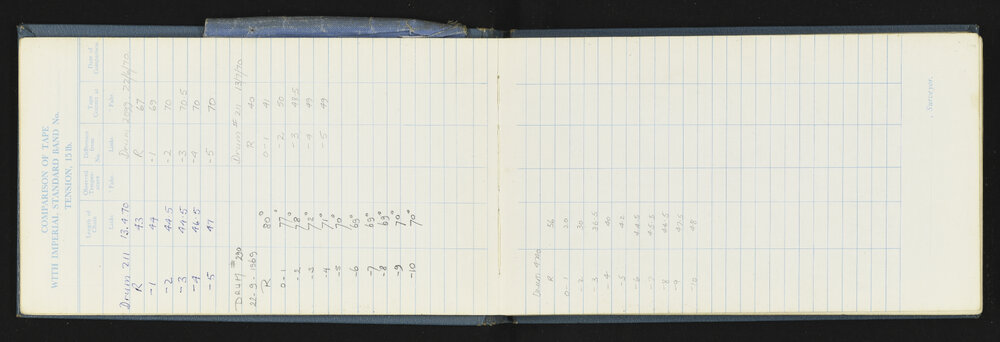 COMPARISON OF TAPE
WITH IMPERIAL STANDARD BAND No.
TENSION, 15 lb.
Length of Chain
Observed Temperature
Difference from No.
Tape Correct at
Date of Comparison
Links. Fahr. Links. Fahr.
Drum 211 13.4.70
R 43
-1 44
-2 44.5
-3 44.5
-4 46.5
-5 47
Drum 22/4/70
R 67
-1 69
-2 70
-3 70.5
-4 70
-5 70
DRUM # 290
22-9-1969
R 80°
0-1 77°
-2 78°
-3 72°
-4 71°
-5 70°
-6 69°
-7 69°
-8 69°
-9 70°
-10 70°
Drum 13/7/70
R 40
0-1 41
-2 50
-3 48.5
-4 49
-5 49
Surveyor.
Drum
R 56
0-1 20
-2 30
-3 36.5
-4 40
-5 42
-6 44.5
-7 45.5
-8 46.5
-9 47.5
-10 48